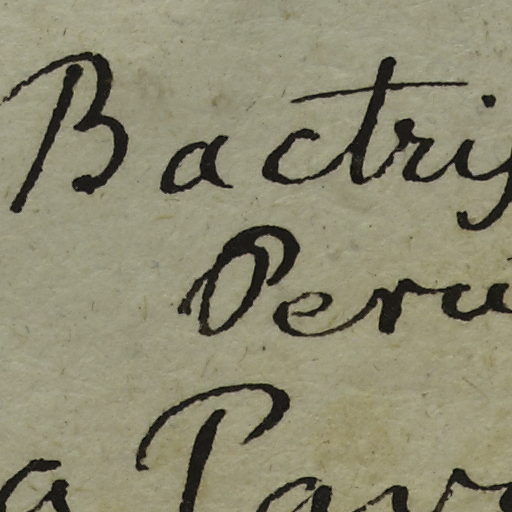 Bactris
Peru
a Pav